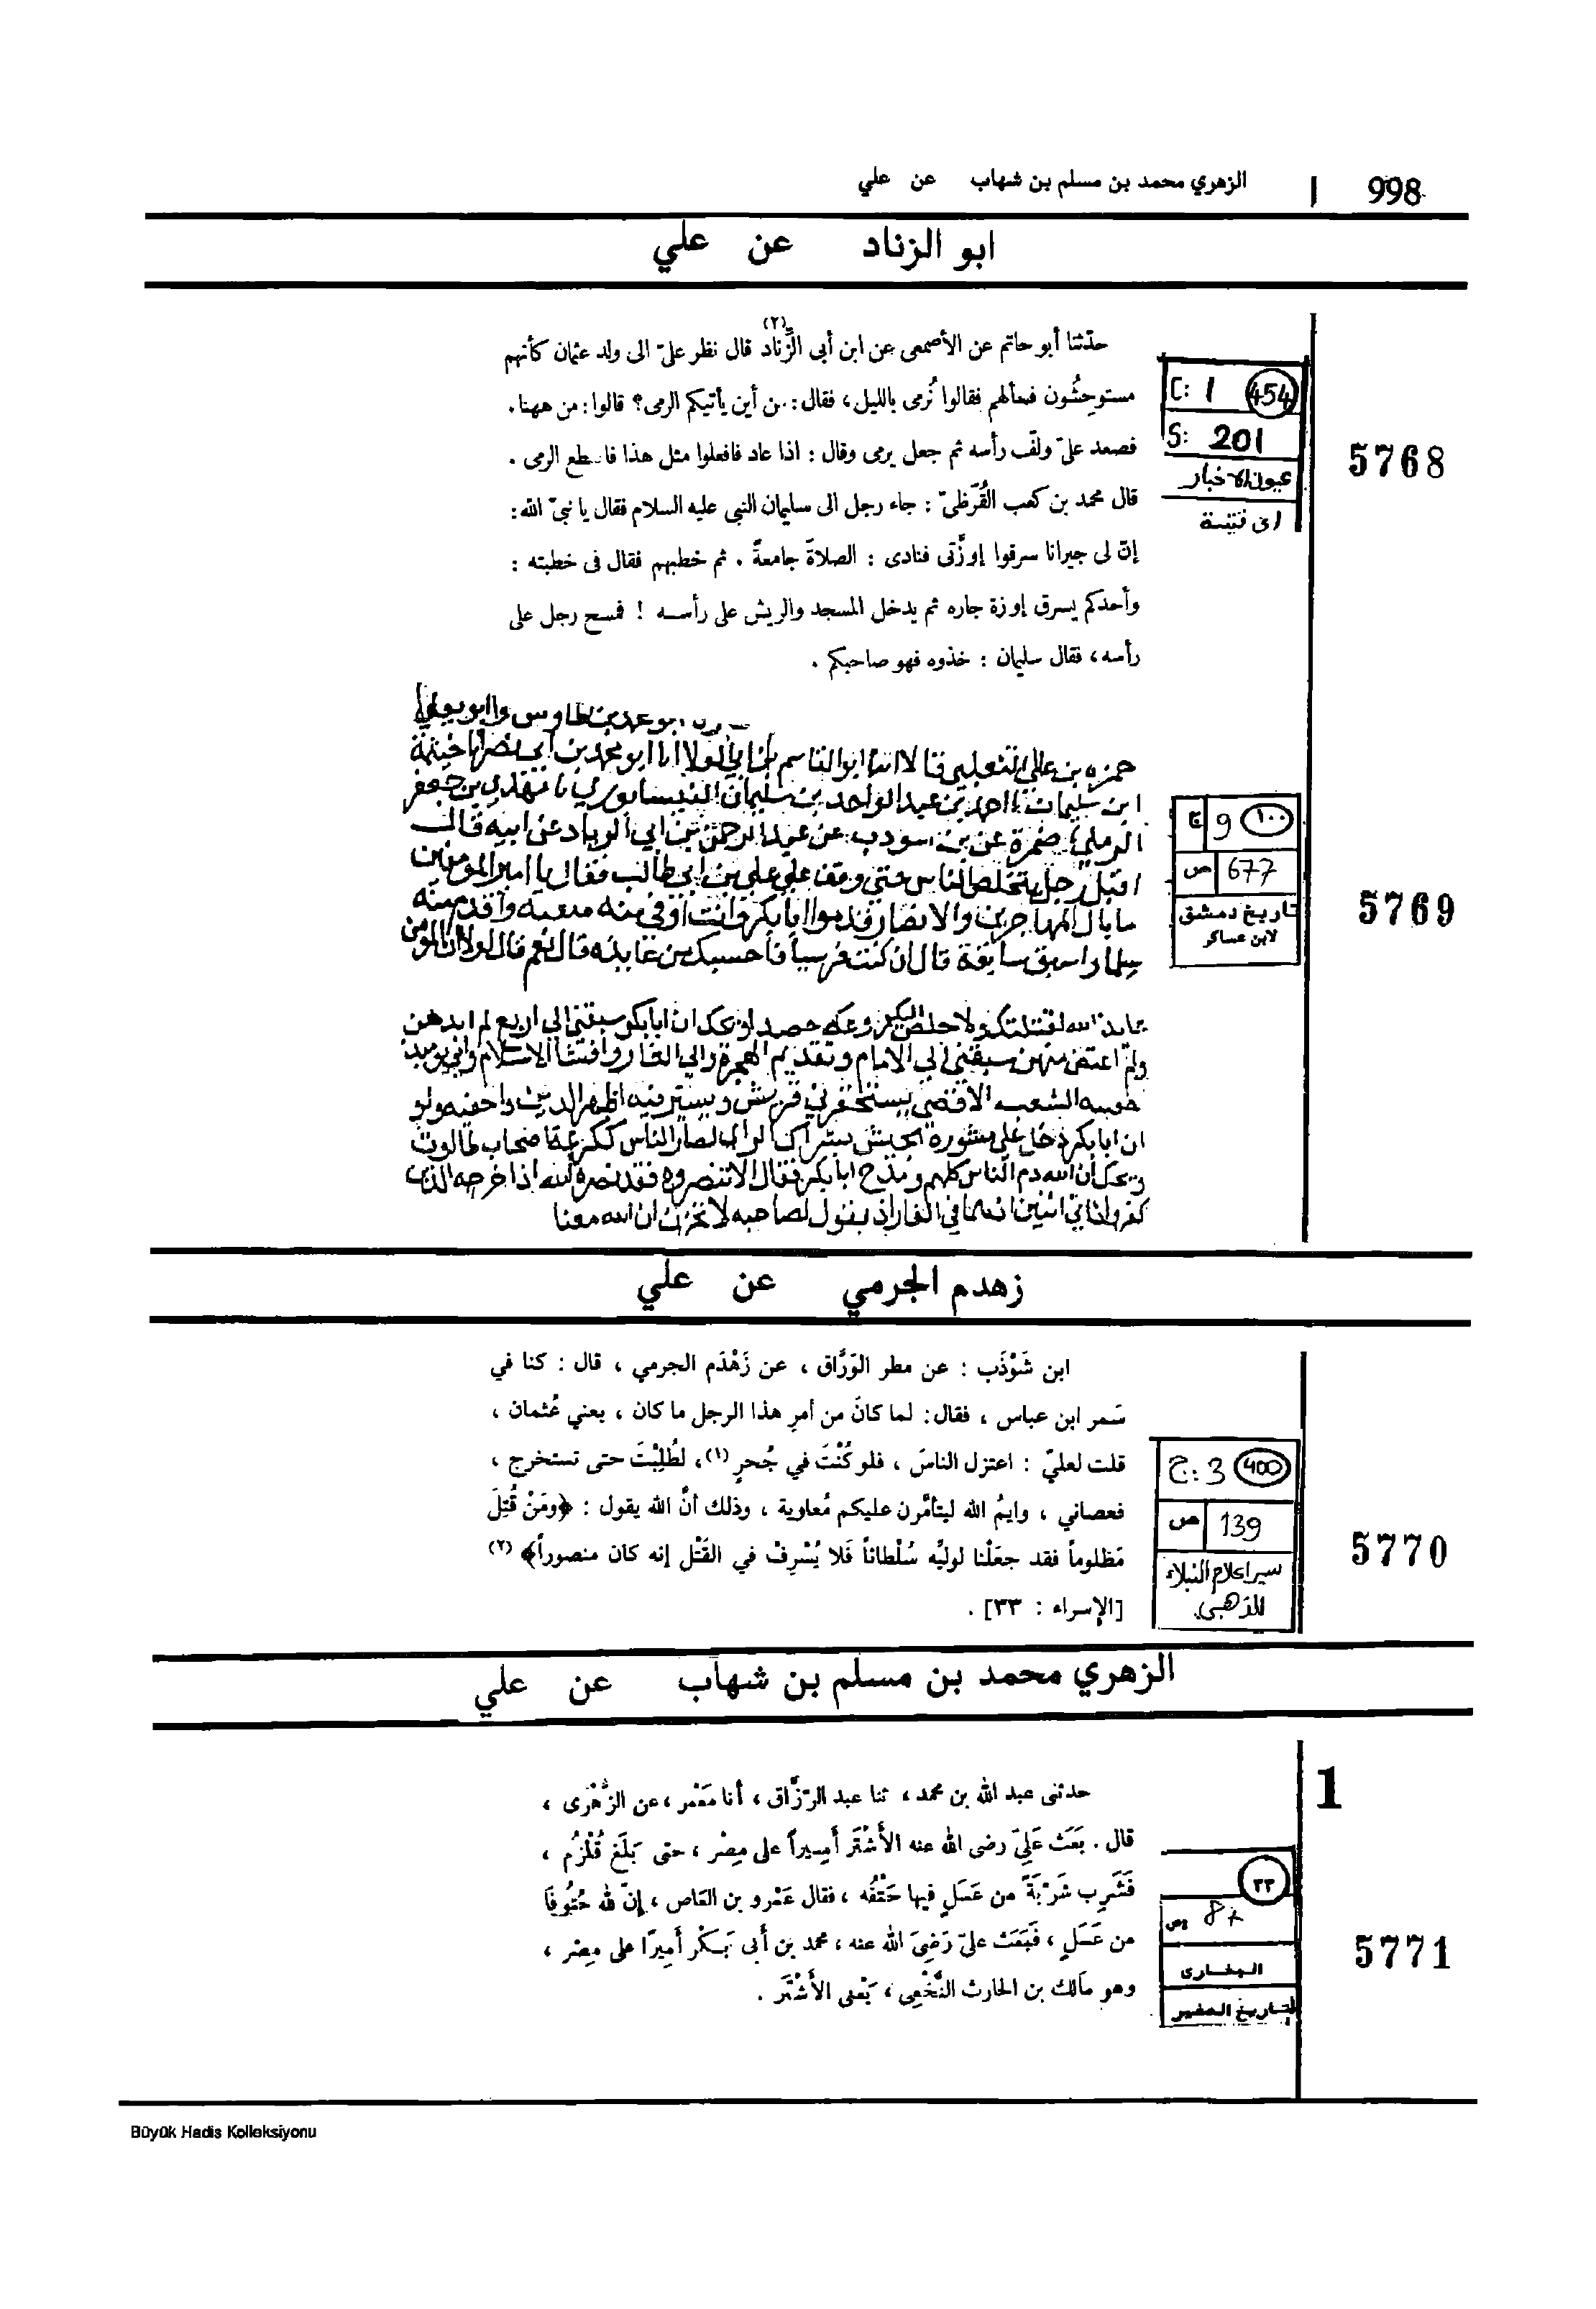 998 | الزهري محمد بن مسلم بن شهاب عن علي
ابو الزناد عن علي
حدّثنا أبو حاتم عن الأصمعى عن ابن أبى الزّناد (٢) قال نظر علىّ الى ولد عثمان كأنهم
مستوحِشُون فسألهم فقالوا نُرمى بالليل، فقال: من أين يأتيكم الرمى؟ قالوا: من ههنا.
فصعد علىّ ولفّ رأسه ثم جعل يرمى وقال : اذا عاد فافعلوا مثل هذا الرمى .
قال محمد بن كعب القُرَظىّ : جاء رجل الى سليمان النبى عليه السلام فقال يا نبىّ الله:
إنّ لى جيرانا سرقوا إوزّتى فنادى : الصلاةَ جامعةً . ثم خطبهم فقال فى خطبته :
وأحدكم يسرق إوزة جاره ثم يدخل المسجد والريش على رأسه ! فمسح رجل على
رأسه، فقال سليمان : خذوه فهو صاحبكم .
C: 1 454
S: 201
عيون الاخبار
ابن قتيبة
5768
حمزه بن علي الثعلبي قالا انبا ابو القاسم بن ابي العلا انا ابو محمد بن ابي نصر انا خيثمة
ابن سليمان نا احمد بن عبد الواحد بن سليمان النيسابوري نا مهدي بن جعفر
الرملي نا ضمرة عن بن شودب عن عبد الرحمن بن ابي الزياد عن ابيه قال
اقبل رجل يتخلص الناس حتي وقف علي علي بن ابي طالب فقال يا امير المومنين
ما بال المهاجرين والانصار قدموا ابا بكر وانت اوفى منه منقبه واقدم منه
سلما واسبق سابقة قال ان كنت قرشيا فاحسبك من عايذه قال نعم قال لولا ان المومن
عايذ الله لقتلتك ويحك ان ابا بكر سبقني الى اربع لم
ولم اعتض منهن سبقني الي الامام وتقديم الهجرة والي الغار وافشا الاسلام
الشعب الاقضي قريش
ان ابا بكر لصار الناس اصحاب طالوت
ويحك ان الله ذم الناس كلهم ومدح ابا بكر فقال الا تنصروه فقد نصره الله اذ اخرجه الذين
كفروا ثاني اثنين اذ هما في الغار اذ يقول لصاحبه لا تحزن ان الله معنا
ج 9 ١٠٠
ص 677
تاريخ دمشق
لابن عساكر
5769
زهدم الجرمي عن علي
ابن شَوْذَب : عن مطر الوَرَّاق ، عن زَهْدَم الجرمي ، قال : كنا في
سَمر ابن عباس ، فقال: لما كانَ من أمرِ هذا الرجل ما كان ، يعني عُثمان ،
قلت لعليّ : اعتزل الناسَ ، فلو كُنْتَ في جُحرٍ (١)، لطُلِبْتَ حتى تستخرج ،
فعصاني ، وايمُ الله ليتأمَّرن عليكم مُعاوية ، وذلك أنَّ الله يقول : ﴿ومَنْ قُتِلَ
مَظلوماً فقد جعَلْنا لوليِّه سُلْطاناً فَلا يُسْرِفْ في القَتْل إنه كان منصوراً﴾ (٢)
[الإسراء : ٣٣] .
ج: 3 400
ص 139
سير اعلام النبلاء
للذهبي
5770
الزهري محمد بن مسلم بن شهاب عن علي
1
حدثنى عبد الله بن محمد، ثنا عبد الرّزّاق، أنا مَعْمر، عن الزُّهْرى ،
قال . بَعَث عَلِىّ رضى الله عنه الأَشْتَر أمِيراً على مِصْر ، حتى بَلَغ قُلْزُم ،
فَشَرِب شَرْبَةً من عَسَلٍ فيها حَتْفُه ، فقال عَمْرو بن العَاص ، إنّ لله حُتُوفًا
من عَسَلٍ ، فَبَعَث علىّ رَضِىَ الله عنه ، محمد بن أبى بَكْر أمِيرًا على مِصْر ،
وهو مَالك بن الحارث النَّخْعِى ، يَعْنى الأَشْتَر .
٣٣
ص 8x
البخارى
التاريخ الصغير
5771
Büyük Hadis Kolleksiyonu